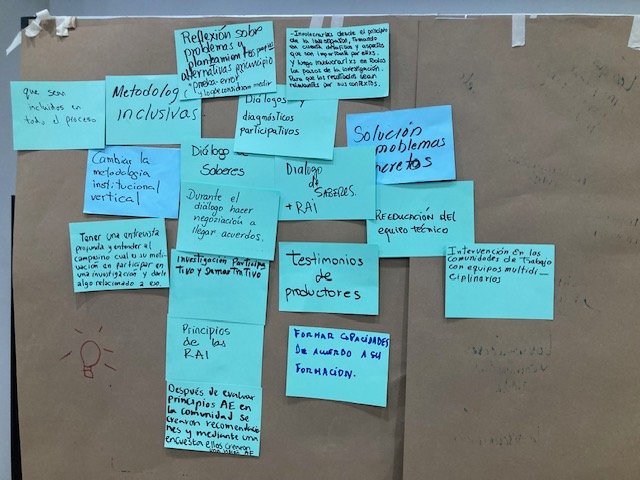 Reflexión sobre
problemas y
planteamientos para
alternativas principio
Prueba-error
- Involucrarlxs desde el principio
de la investigación, tomando
en cuenta desafíos y aspectos
que son importante por ellxs.
y luego involucrarlxs en todos
los pasos de la investigación.
Para que los resultados sean
relevantes por sus contextos.
que sean
incluidos en
todo el proceso
Metodolog
inclusivas
Diálogos y
diagnósticos
participativos
Solución
problemas
cretos
Cambiar la
metodología
institucional
vertical
Diálogo de
Saberes
Dialogo
de
SABERES.
+ RAI
Durante el
diálogo hacer
negociación a
llegar acuerdos.
REEDUCACIÓN DEL
EQUIPO TÉCNICO
Tener una entrevista
profunda y entender al
campesino cual es su moti-
vación en participar en
una investigación y darle
algo relacionado a eso.
Investigación Participa
tivo y Demostrativo
Testimonios
de
productores
Intervención en las
comunidades de trabajo
con equipos multidi-
ciplinarios
Principios
de las
RAI
FORMAR CAPACIDADES
DE ACUERDO A SU
FORMACIÓN.
Después de evaluar
principios AE en
la comunidad se
crearon recomendacio
nes y mediante una
encuesta ellos crearon